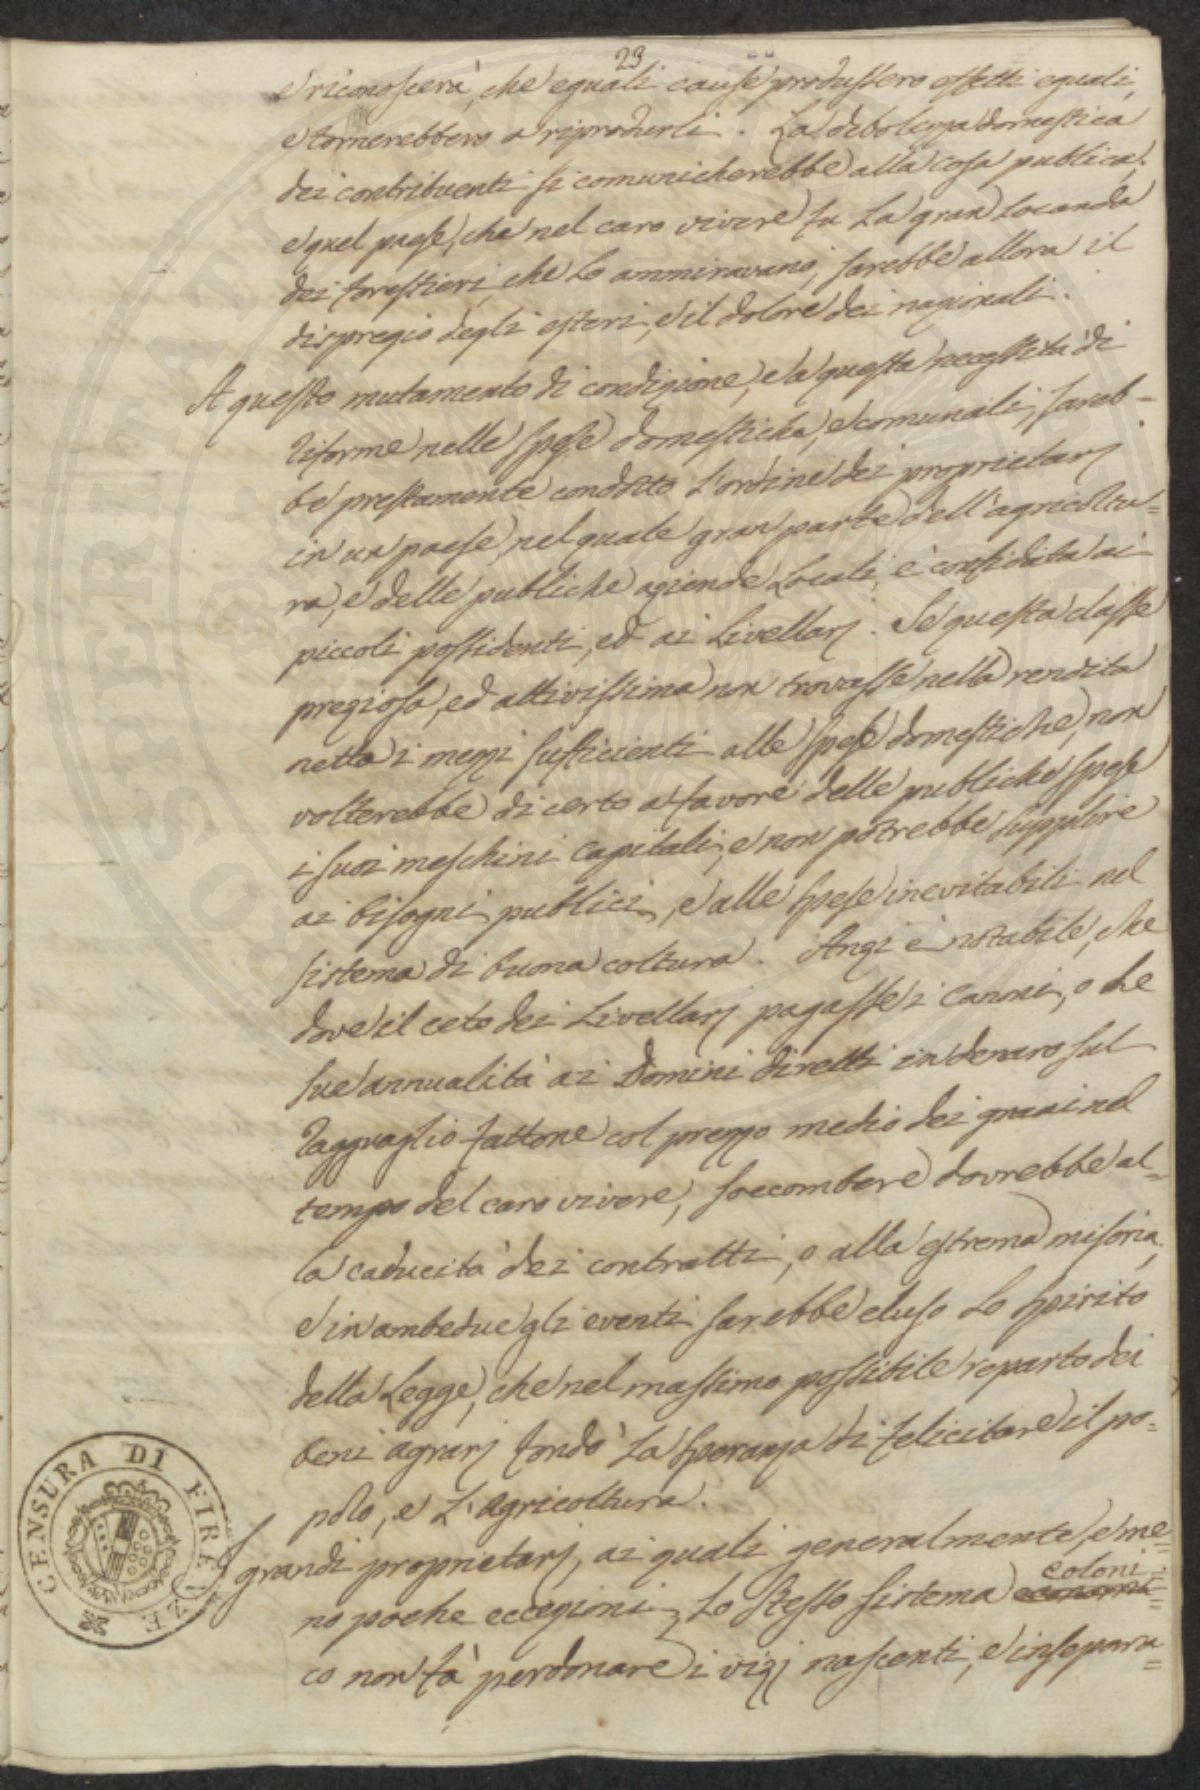 23
e riconoscerà, che eguali cause produssero effetti eguali,
e tornerebbero a riprodurli. La debolezza domestica
dei contribuenti si comunicherebbe alla cosa publica;
e quel paese, che nel caro vivere fu La gran Locanda
dei forestieri, che Lo ammiravano, sarebbe allora il
dispregio degli esteri, e il dolore dei nazionali.
A questo mutamento di condizione, e a questa necessità di
riforme nelle spese domestiche, e comunali, sareb-
be prestamente condotto L'ordine dei proprietarj
in un paese, nel quale gran parte dell'agricoltu=
ra, e delle publiche aziende Locali, è confidata ai
piccoli possidenti, ed ai Livellarj. Se questa classe
pregiosa, ed attivissima non trovasse nella rendita
netta i mezzi sufficienti alle spese domestiche, non
volterebbe di certo a favore delle publiche spese
i suoi meschini capitali, e non potrebbe supplire
ai bisogni publici, e alle spese inevitabili nel
sistema di buona coltura. Anzi è notabile, che
dove il ceto dei Livellarj pagasse i Canoni, o le
sue annualità ai Domini diretti in denaro sul
ragguaglio fattone col prezzo medio dei grani nel
tempo del caro vivere, soccombere dovrebbe al=
la caducità dei contratti, o alla estrema miseria,
e in ambedue gli eventi sarebbe eluso Lo spirito
della Legge, che nel massimo possibile reparto dei
beni agrarj fondò La speranza di felicitare il po=
polo, e L'agricoltura.
I grandi proprietarj, ai quali generalmente, e me=
no poche eccezioni, Lo stesso sistema economi= coloni=
co non fà perdonare i vizj nascenti, e insepara=
CENSURA DI FIRENZE
SOSPERITATI